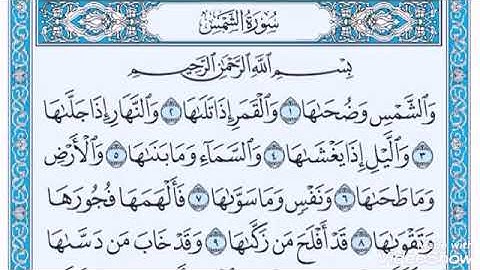 سُورَةُ الشَّمْسِ
بِسْمِ اللَّهِ الرَّحْمَٰنِ الرَّحِيمِ
وَالشَّمْسِ وَضُحَىٰهَا ١ وَالْقَمَرِ إِذَا تَلَىٰهَا ٢ وَالنَّهَارِ إِذَا جَلَّىٰهَا
٣ وَالَّيْلِ إِذَا يَغْشَىٰهَا ٤ وَالسَّمَآءِ وَمَا بَنَىٰهَا ٥ وَالْأَرْضِ
وَمَا طَحَىٰهَا ٦ وَنَفْسٍ وَمَا سَوَّىٰهَا ٧ فَأَلْهَمَهَا فُجُورَهَا
وَتَقْوَىٰهَا ٨ قَدْ أَفْلَحَ مَن زَكَّىٰهَا ٩ وَقَدْ خَابَ مَن دَسَّىٰهَا